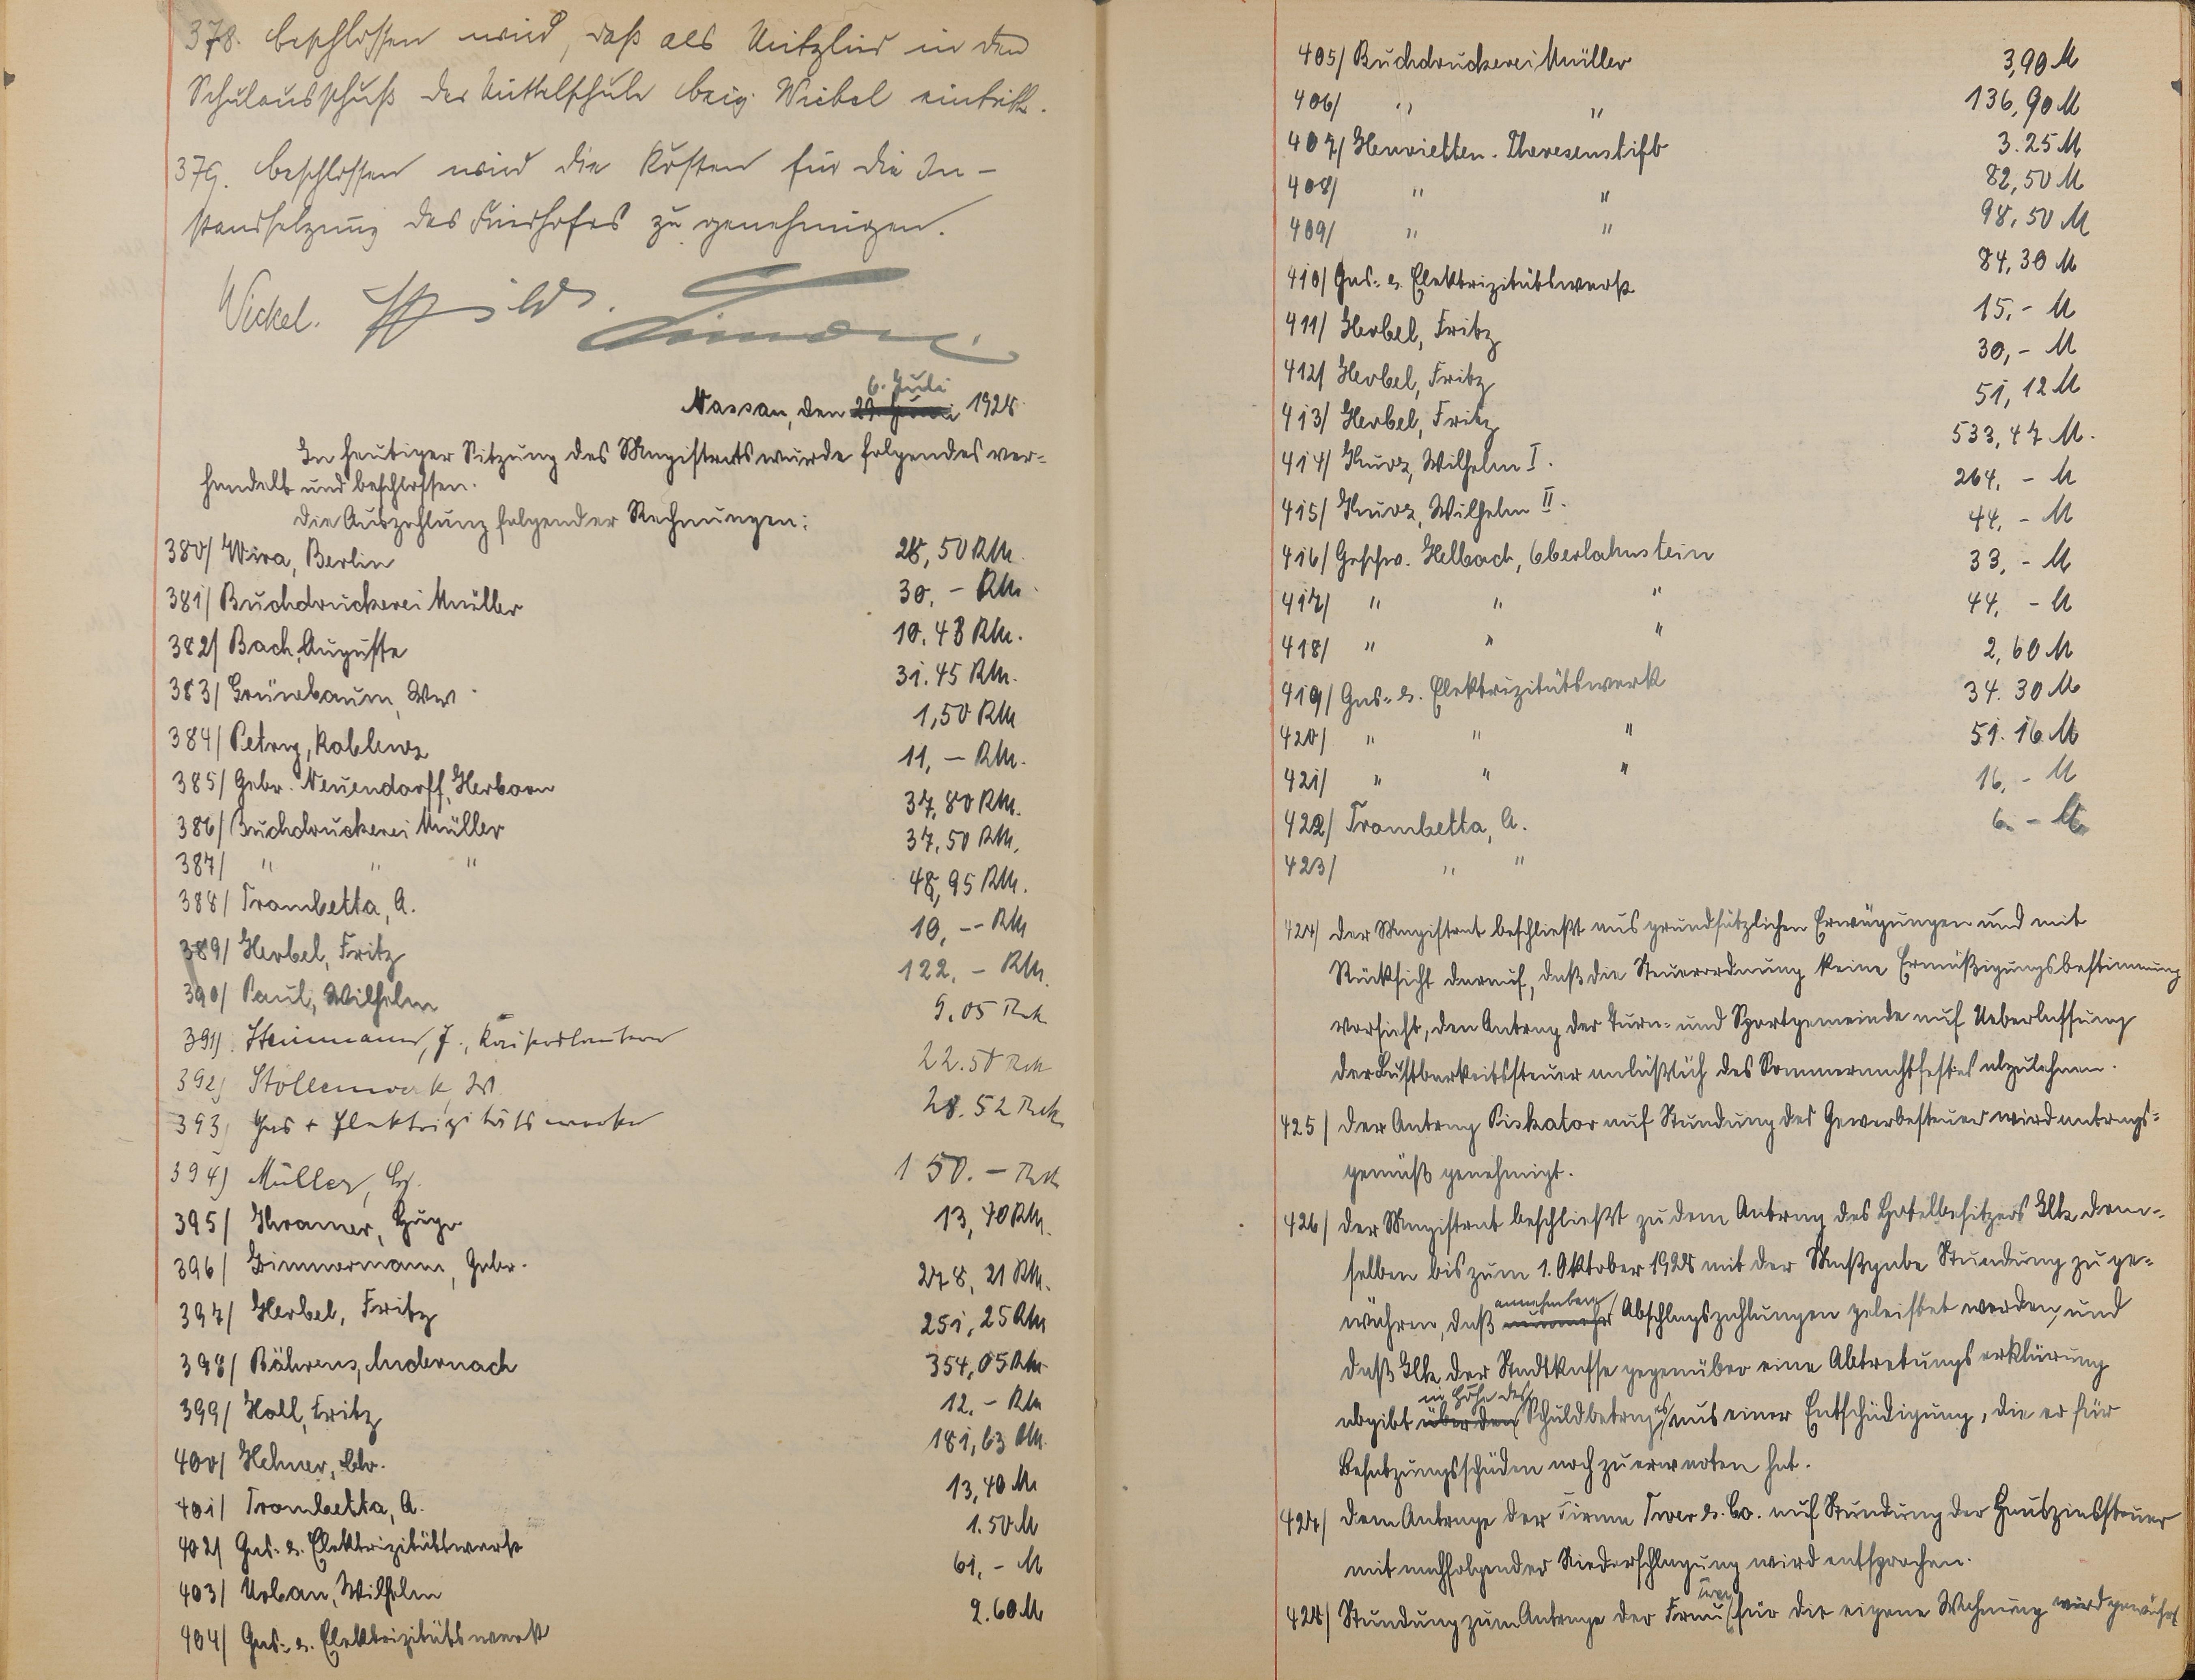 378. beschlossen wird, daß als Mitglied in den
Schulausschuß der Mittelschule beig. Wickel eintritt.
379. beschlossen wird die Kosten für die In-
standsetzung des Friedhofes zu genehmigen.
Wickel.
Nassau, den 29. Juni 6. Juli 1928
In heutiger Sitzung des Magistrats wurde folgendes ver-
handelt und beschlossen.
Die Auszahlung folgender Rechnungen:
380/ Wira, Berlin 28,50 RM.
381/ Buchdruckerei Müller 30,- RM.
382/ Bach, Auguste 10.48 RM.
383/ Grünebaum, Ww. 31.45 RM.
384/ Petry, Koblenz 1,50 RM
385/ Gebr. Neuendorff, Herborn 11,- RM.
386/ Buchdruckerei Müller 37,80 RM.
387/ " " " 37,50 RM.
388/ Trombetta, A. 48,95 RM.
389/ Herbel, Fritz 10,-- RM
390/ Paul, Wilhelm 122,- RM.
391/. Steinmann, J., Kaiserslautern 9.05 RM
392) Stollenwerk, W. 22.50 RM
393, Gas + Elektrizitätswerke 28.52 RM
394) Müller, G. 150.- RM
395/ Kramer, Hugo 13,40 RM.
396/ Zimmermann, Gebr. 278,21 RM.
397/ Herbel, Fritz 251,25 RM
398/ Bährens, Andernach 354,05 RM
399/ Holl, Fritz 12.- RM
400/ Hehner, Chr. 181,63 RM.
401/ Trombetta, A. 13,40 M
402/ Gas- u. Elektrizitätswerk 1.50 M
403/ Urban, Wilhelm 61,- M
404/ Gas- u. Elektrizitätswerk 2.60 M
405/ Buchdruckerei Müller 3,90 M
406/ " " 136,90 M
407/ Henrietten-Theresenstift 3.25 M
408/ " " 82,50 M
409/ " " 98,50 M
410/ Gas- u. Elektrizitätswerk 84,30 M
411/ Herbel, Fritz 15,- M
412/ Herbel, Fritz 30,- M
413/ Herbel, Fritz 51,12 M
414/ Kurz, Wilhelm I. 533,47 M.
415/ Kurz, Wilhelm II. 264,- M
416/ Geschw. Helbach, Oberlahnstein 44,- M
417/ " " " 33,- M
418/ " " " 44,- M
419/ Gas- u. Elektrizitätswerk 2,60 M
420/ " " " 34.30 M
421/ " " " 51.16 M
422/ Trombetta, A. 16,- M
423/ " " 6.- M
424/ Der Magistrat beschließt aus grundsätzlichen Erwägungen und mit
Rücksicht darauf, daß die Steuerordnung keine Ermäßigungsbestimmung
vorsieht, den Antrag der Turn- und Sportgemeinde auf Ueberlassung
der Lustbarkeitssteuer anläßlich des Sommernachtsfestes abzulehnen.
425/ Der Antrag Piskator auf Stundung der Gewerbesteuer wird antrags-
gemäß genehmigt.
426/ Der Magistrat beschließt zu dem Antrag des Hotelbesitzers dem-
selben bis zum 1. Oktober 1928 mit der Maßgabe Stundung zu ge-
währen, daß annehmbare Abschlagszahlungen geleistet werden, und
daß der Stadtkasse gegenüber eine Abtretungserklärung
abgibt über den in Höhe des Schuldbetrages aus einer Entschädigung, die er für
Besatzungsschäden noch zu erwarten hat.
427/ Dem Antrage der Firma u. Co. auf Stundung der Hauszinssteuer
mit nachfolgender Niederschlagung wird entsprochen.
428/ Stundung zum Antrage der Frau für die eigene Wohnung wird gewährt